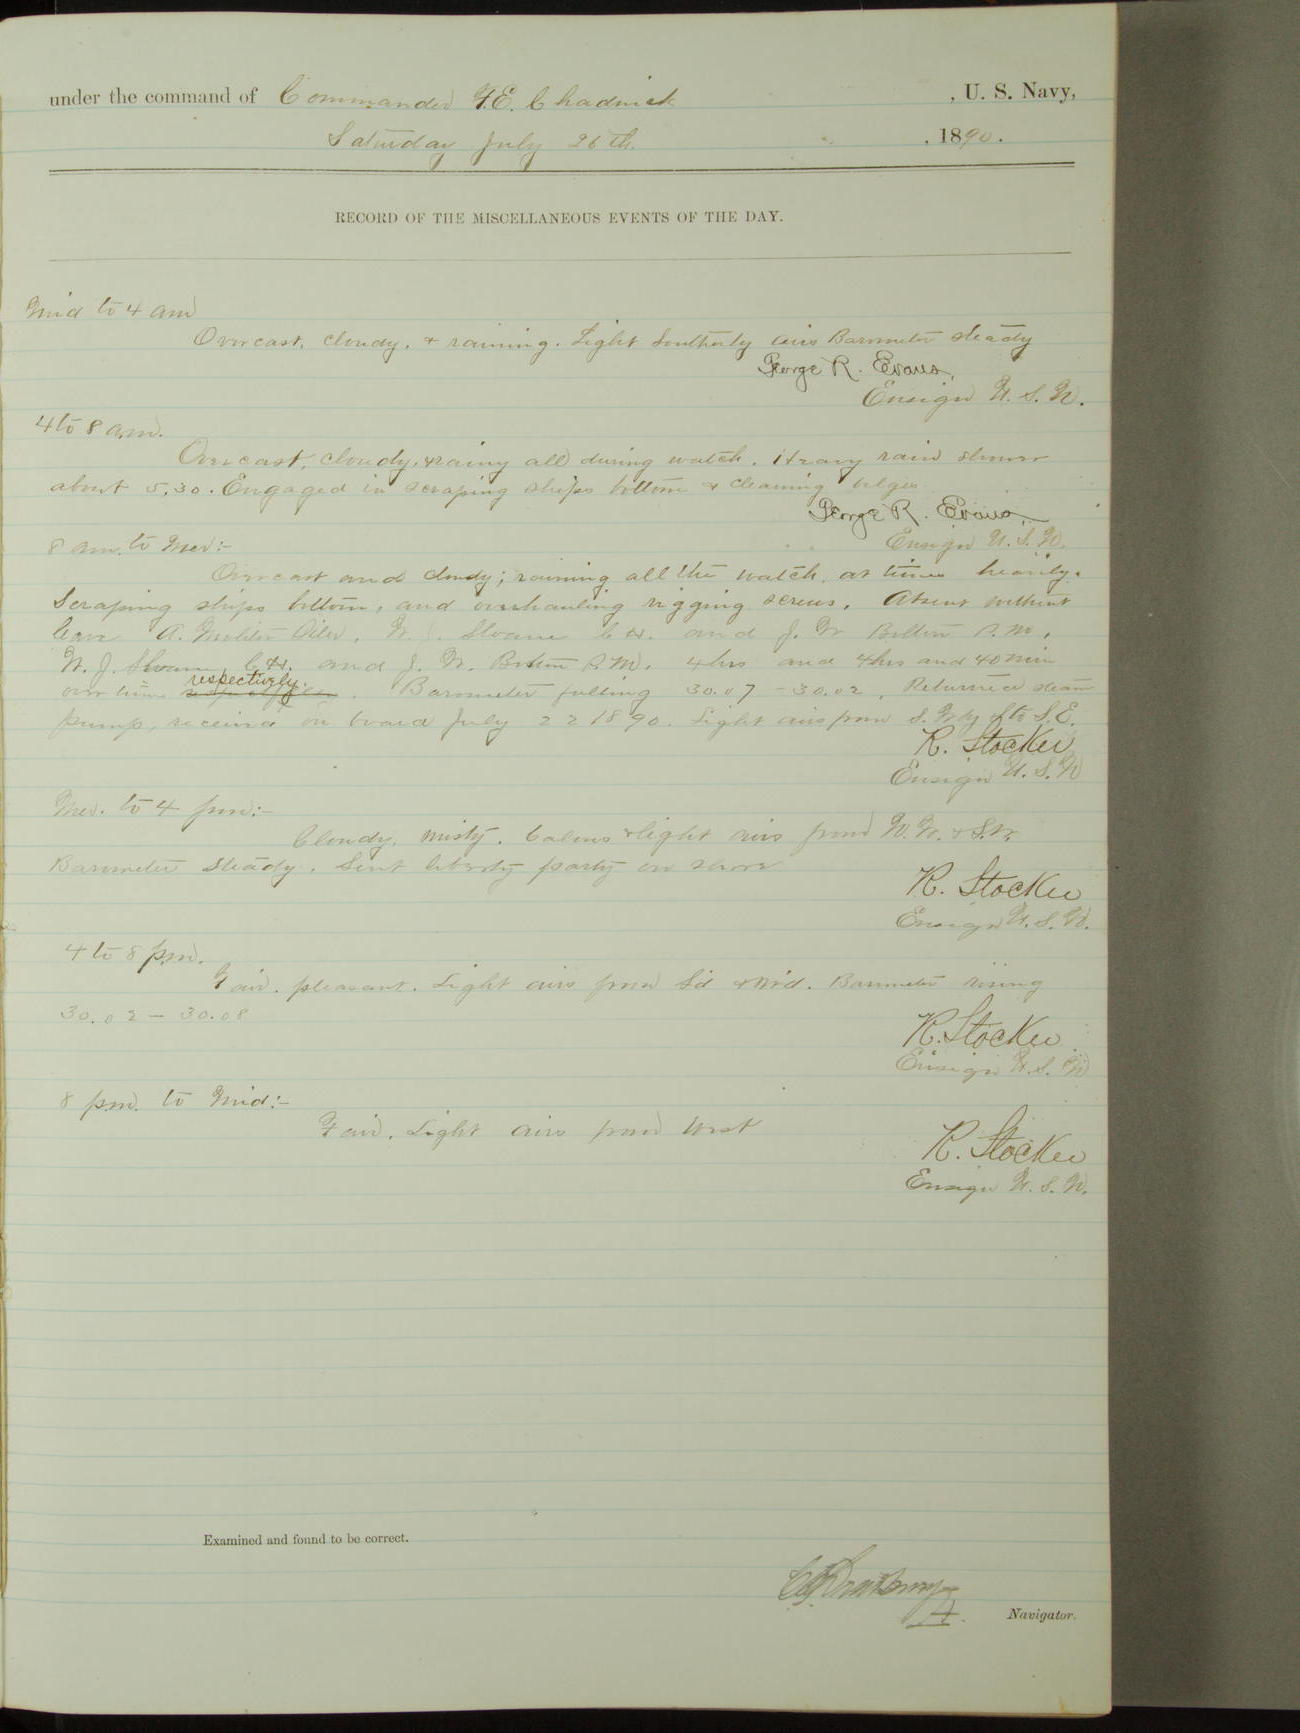 under the command of Commander F.E. Chadwick , U. S. Navy,
Saturday July 26th. , 1890.
RECORD OF THE MISCELLANEOUS EVENTS OF THE DAY.
Mid to 4 am
Overcast, cloudy, & raining. Light Southerly airs Barometer steady
George R. Evans,
Ensign U. S. N.
4 to 8 a.m.
Overcast, cloudy, & rainy all during watch. Heavy rain shower
about 5.30. Engaged in scraping ships bottom & cleaning bilges
George R. Evans,
Ensign U. S. N.
8 am. to Mer:-
Overcast and cloudy; raining all the watch, at times heavily.
Scraping ships bottom, and overhauling rigging screws. Absent without
leave A. Oiler, W. J. Sloane and J. W. Bolton P.M.
W. J. Sloane, and J. W. Bolton P.M. 4 hrs and 4 hrs and 40 min
over time respectively. Barometer falling 30.07 - 30.02. Returned steam
pump, received on board July 22 1890. Light airs from S. Wdy to S.E.
R. Stocker
Ensign U. S. N
Mer. to 4 pm:-
Cloudy, misty. Calms & light airs from N.W. & S.W.
Barometer steady. Sent liberty party on shore
R. Stocker
Ensign U. S. N.
4 to 8 p.m.
Fair. pleasant. Light airs from S'd & W'd. Barometer rising
30.02 - 30.08
R. Stocker
Ensign U. S. N
8 p.m. to Mid:-
Fair. Light airs from West
R. Stocker
Ensign U. S. N.
Examined and found to be correct.
Navigator.